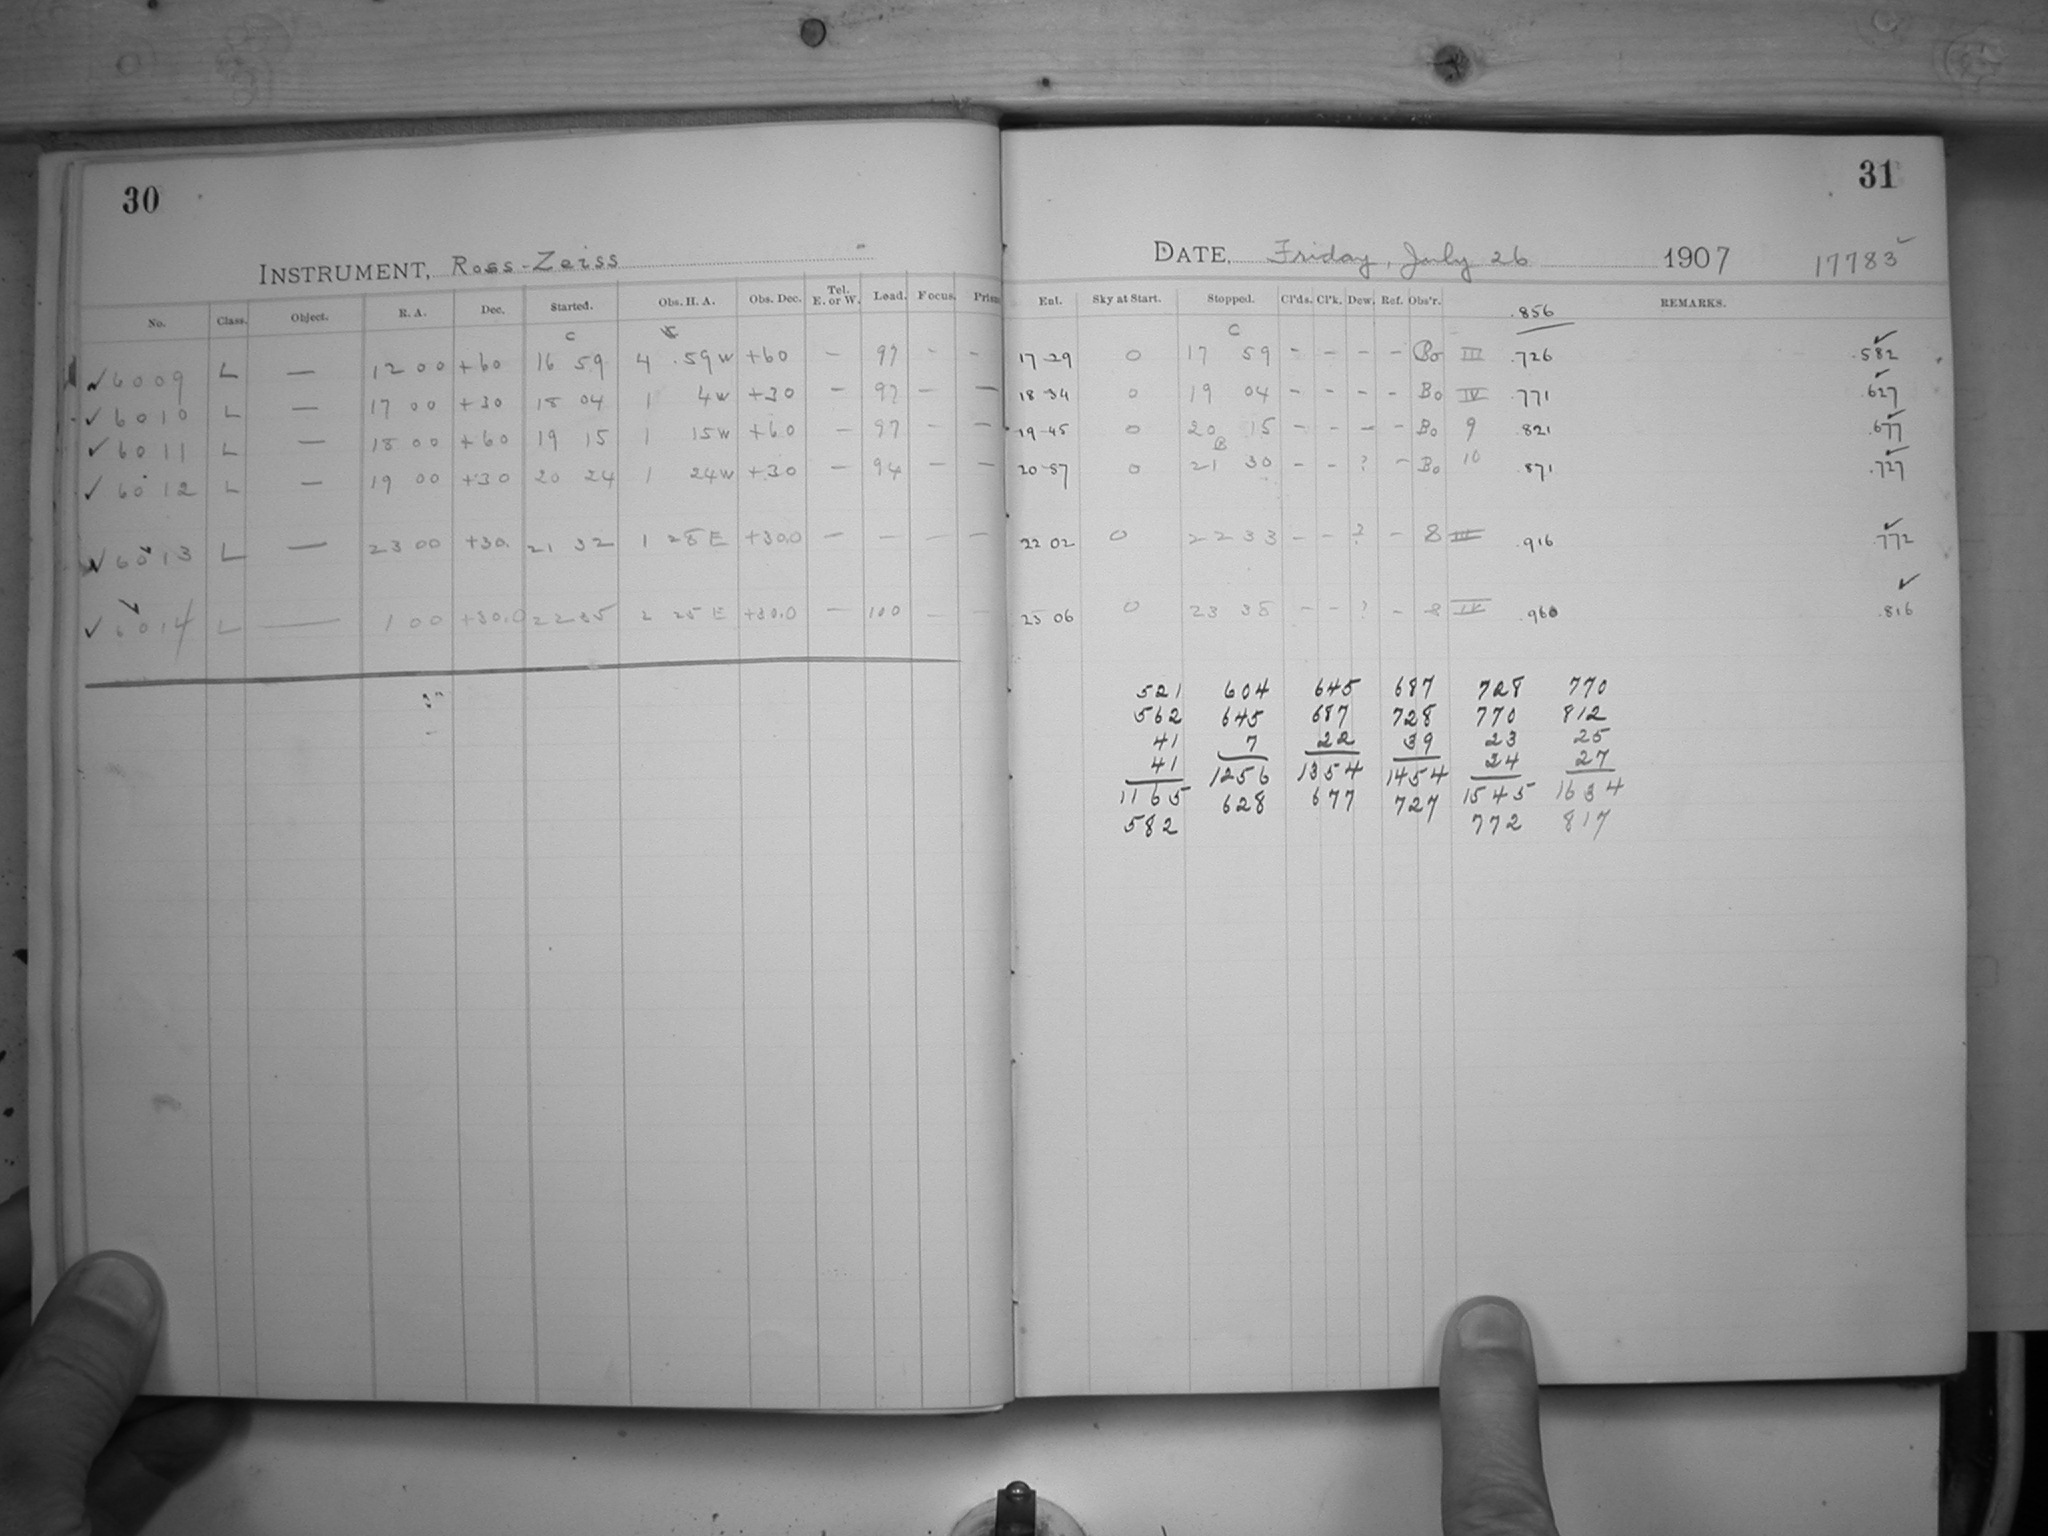 30
INSTRUMENT, Ross-Zeiss
No. Class. Object. R. A. Dec. Started. Obs. H. A. Obs. Dec. Tel. E. or W. Load. Focus. Prism
C
✓6009 L — 12 00 +60 16 59 4 59W +60 — 97 - -
✓6010 L — 17 00 +30 18 04 1 4W +30 — 97 — —
✓6011 L — 18 00 +60 19 15 1 15W +60 — 97 — —
✓6012 L — 19 00 +30 20 24 1 24W +30 — 94 — —
✓6013 L — 23 00 +30. 21 32 1 28E +30.0 — — — —
✓6014 L — 1 00 +30.0 22 35 2 25E +30.0 — 100 — —
31
DATE, Friday, July 26 1907 17783
Ent. Sky at Start. Stopped. Cl'ds. Cl'k. Dew. Ref. Obs'r. REMARKS.
.856
C
17-29 0 17 59 - - - - Bo III .726 .582
18-34 0 19 04 - - - - Bo IV .771 .627
19-45 0 20 15 - - - - Bo 9 .821 .677
B
20-57 0 21 30 - - ? - Bo 10 .871 .727
22 02 0 22 33 - - ? - 8 III .916 .772
23 06 0 23 35 - - ? - 8 IV .960 .816
521 604 645 687 728 770
562 645 687 728 770 812
41 7 22 39 23 25
41 24 27
1165 1256 1354 1454 1545 1634
582 628 677 727 772 817